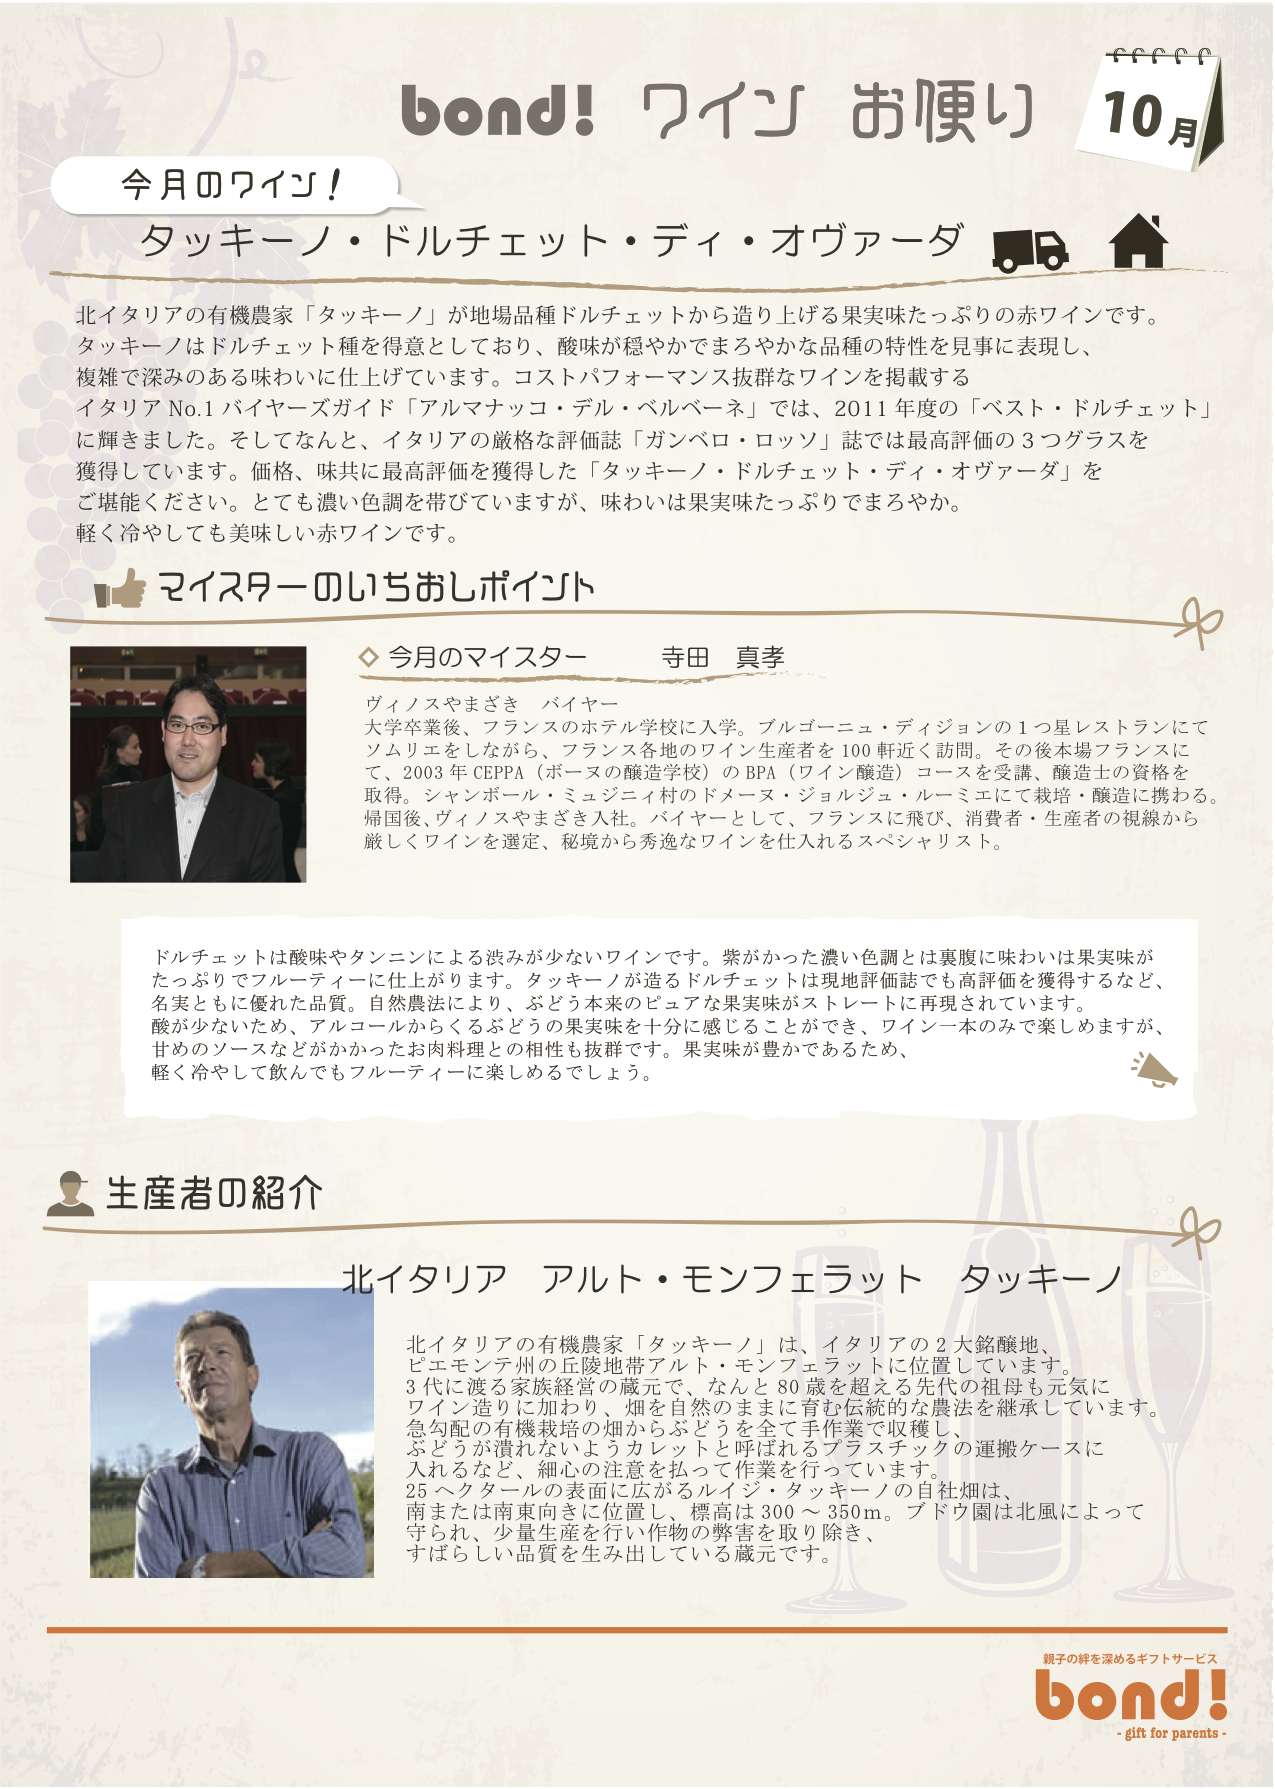 bond! ワイン お便り
10月
今月のワイン!
タッキーノ・ドルチェット・ディ・オヴァーダ
北イタリアの有機農家「タッキーノ」が地場品種ドルチェットから造り上げる果実味たっぷりの赤ワインです。
タッキーノはドルチェット種を得意としており、酸味が穏やかでまろやかな品種の特性を見事に表現し、
複雑で深みのある味わいに仕上げています。コストパフォーマンス抜群なワインを掲載する
イタリア No.1 バイヤーズガイド「アルマナッコ・デル・ベルベーネ」では、2011 年度の「ベスト・ドルチェット」
に輝きました。そしてなんと、イタリアの厳格な評価誌「ガンベロ・ロッソ」誌では最高評価の 3 つグラスを
獲得しています。価格、味共に最高評価を獲得した「タッキーノ・ドルチェット・ディ・オヴァーダ」を
ご堪能ください。とても濃い色調を帯びていますが、味わいは果実味たっぷりでまろやか。
軽く冷やしても美味しい赤ワインです。
マイスターのいちおしポイント
◇ 今月のマイスター 寺田 真孝
ヴィノスやまざき バイヤー
大学卒業後、フランスのホテル学校に入学。ブルゴーニュ・ディジョンの 1 つ星レストランにて
ソムリエをしながら、フランス各地のワイン生産者を 100 軒近く訪問。その後本場フランスに
て、2003 年 CEPPA（ボーヌの醸造学校）の BPA（ワイン醸造）コースを受講、醸造士の資格を
取得。シャンボール・ミュジニィ村のドメーヌ・ジョルジュ・ルーミエにて栽培・醸造に携わる。
帰国後、ヴィノスやまざき入社。バイヤーとして、フランスに飛び、消費者・生産者の視線から
厳しくワインを選定、秘境から秀逸なワインを仕入れるスペシャリスト。
ドルチェットは酸味やタンニンによる渋みが少ないワインです。紫がかった濃い色調とは裏腹に味わいは果実味が
たっぷりでフルーティーに仕上がります。タッキーノが造るドルチェットは現地評価誌でも高評価を獲得するなど、
名実ともに優れた品質。自然農法により、ぶどう本来のピュアな果実味がストレートに再現されています。
酸が少ないため、アルコールからくるぶどうの果実味を十分に感じることができ、ワイン一本のみで楽しめますが、
甘めのソースなどがかかったお肉料理との相性も抜群です。果実味が豊かであるため、
軽く冷やして飲んでもフルーティーに楽しめるでしょう。
生産者の紹介
北イタリア アルト・モンフェラット タッキーノ
北イタリアの有機農家「タッキーノ」は、イタリアの 2 大銘醸地、
ピエモンテ州の丘陵地帯アルト・モンフェラットに位置しています。
3 代に渡る家族経営の蔵元で、なんと 80 歳を超える先代の祖母も元気に
ワイン造りに加わり、畑を自然のままに育む伝統的な農法を継承しています。
急勾配の有機栽培の畑からぶどうを全て手作業で収穫し、
ぶどうが潰れないようカレットと呼ばれるプラスチックの運搬ケースに
入れるなど、細心の注意を払って作業を行っています。
25 ヘクタールの表面に広がるルイジ・タッキーノの自社畑は、
南または南東向きに位置し、標高は 300 ～ 350m。ブドウ園は北風によって
守られ、少量生産を行い作物の弊害を取り除き、
すばらしい品質を生み出している蔵元です。
親子の絆を深めるギフトサービス
bond!
- gift for parents -